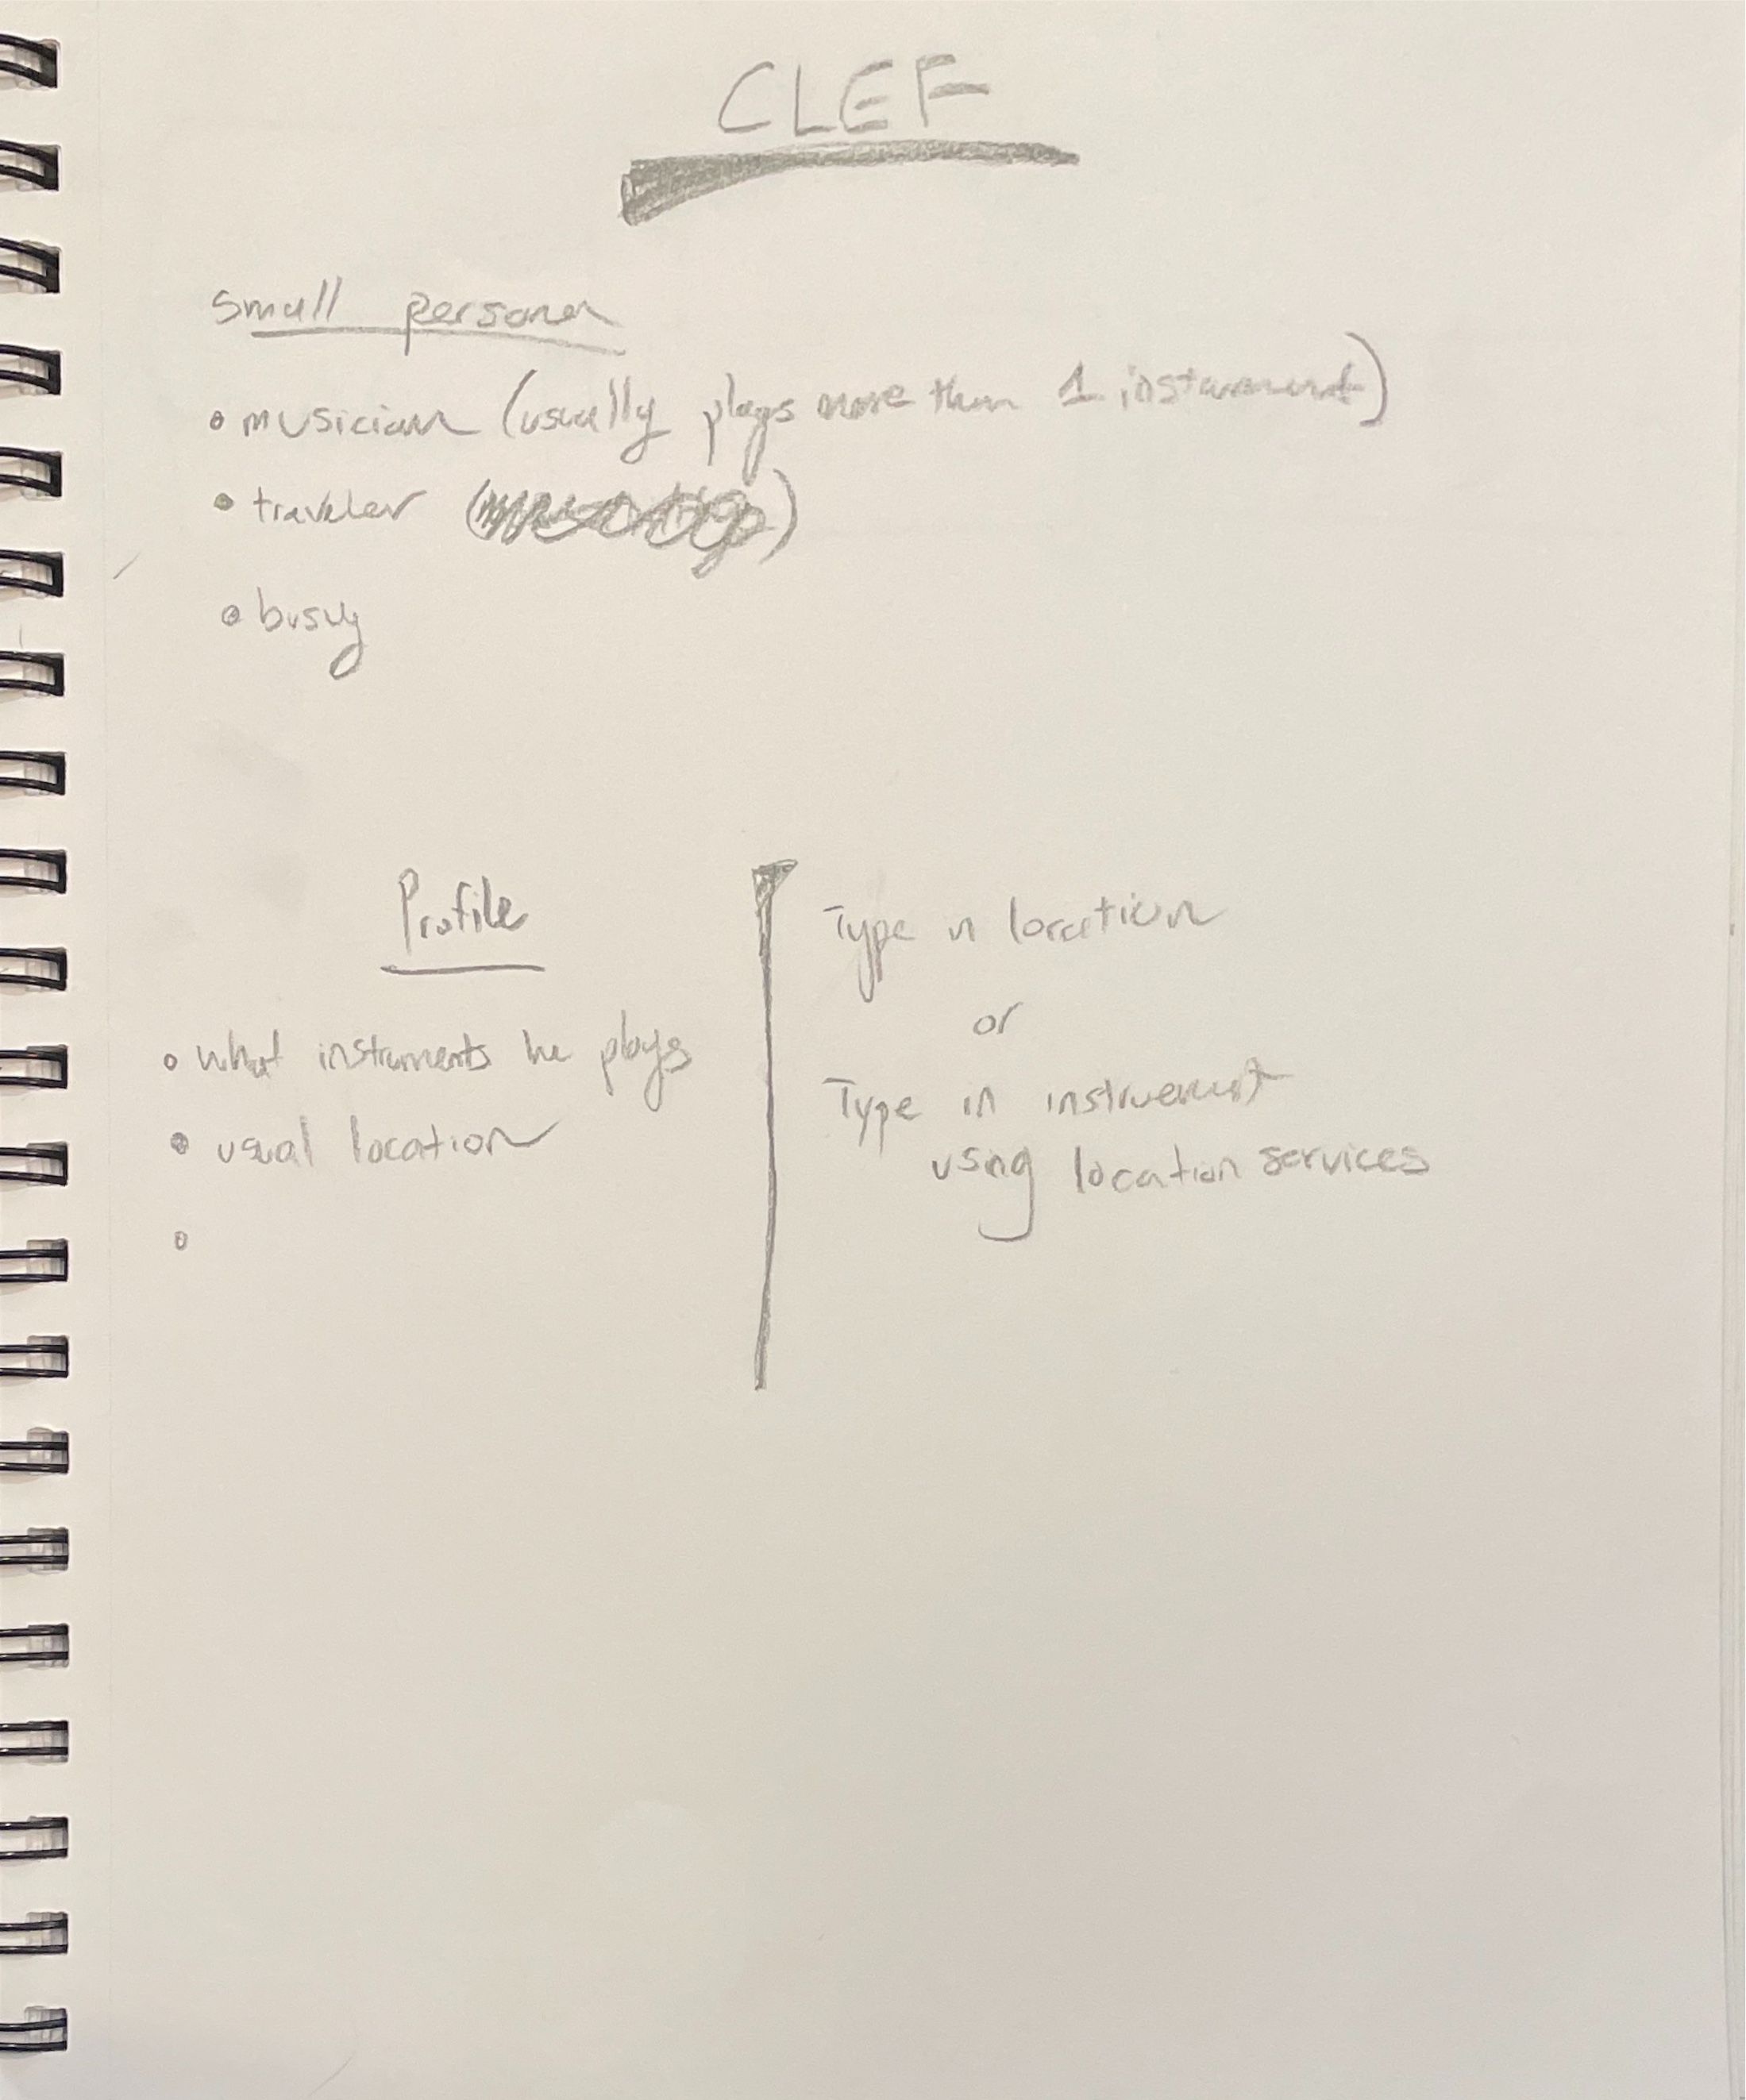 CLEF
small persona
• musician (usually plays more than 1 instrument)
• traveler ( )
• busy
Profile
• what instruments he plays
• usual location
•
Type in location
or
Type in instrument
using location services